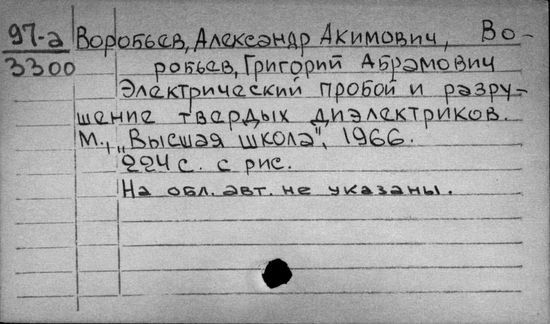 97-а Воробьев, Александр Акимович, Во-
3300 робьев, Григорий Абрамович
Электрический пробой и разру-
шение твердых диэлектриков.
М., „Высшая школа", 1966.
224 с. с рис.
На обл. авт. не указаны.